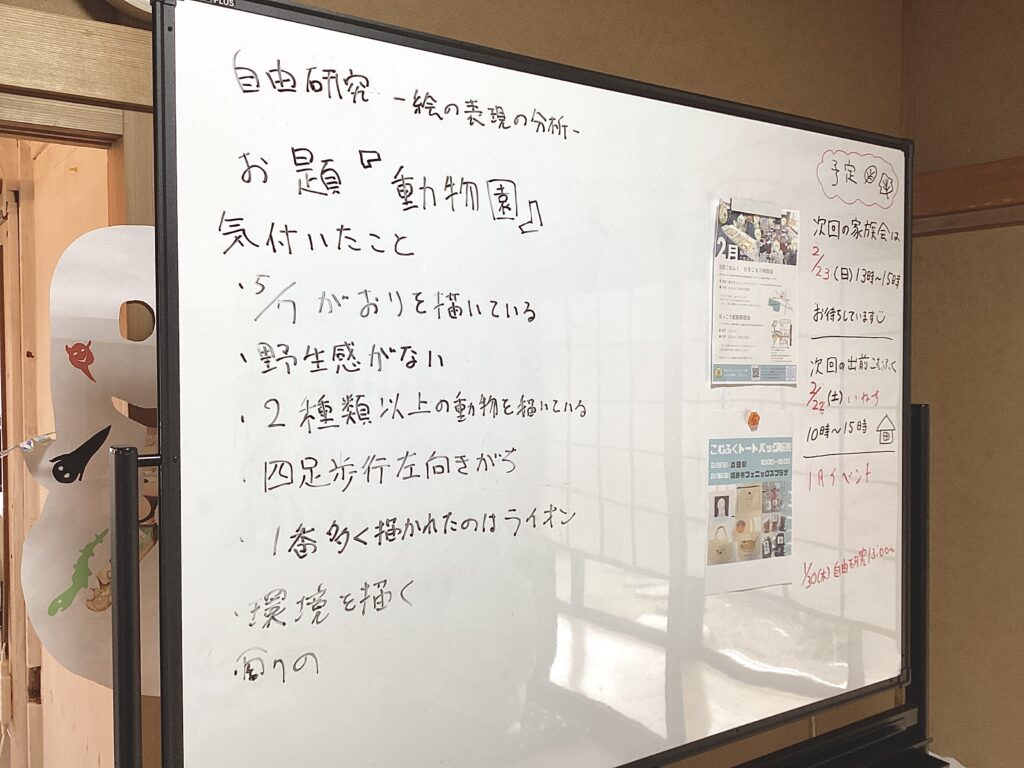 PLUS
自由研究 -絵の表現の分析-
お題『動物園』
気付いたこと
・5/7がおりを描いている
・野生感がない
・2種類以上の動物を描いている
四足歩行左向きがち
・1番多く描かれたのはライオン
・環境を描く
回りの
予定
次回の家族会は
2/23(日)13時~15時
お待ちしています
次回の出前こむふく
2/22(土)いねす
10時~15時
1月イベント
1/30(木)自由研究13:00~
2月
こむふくトートバッグ販売